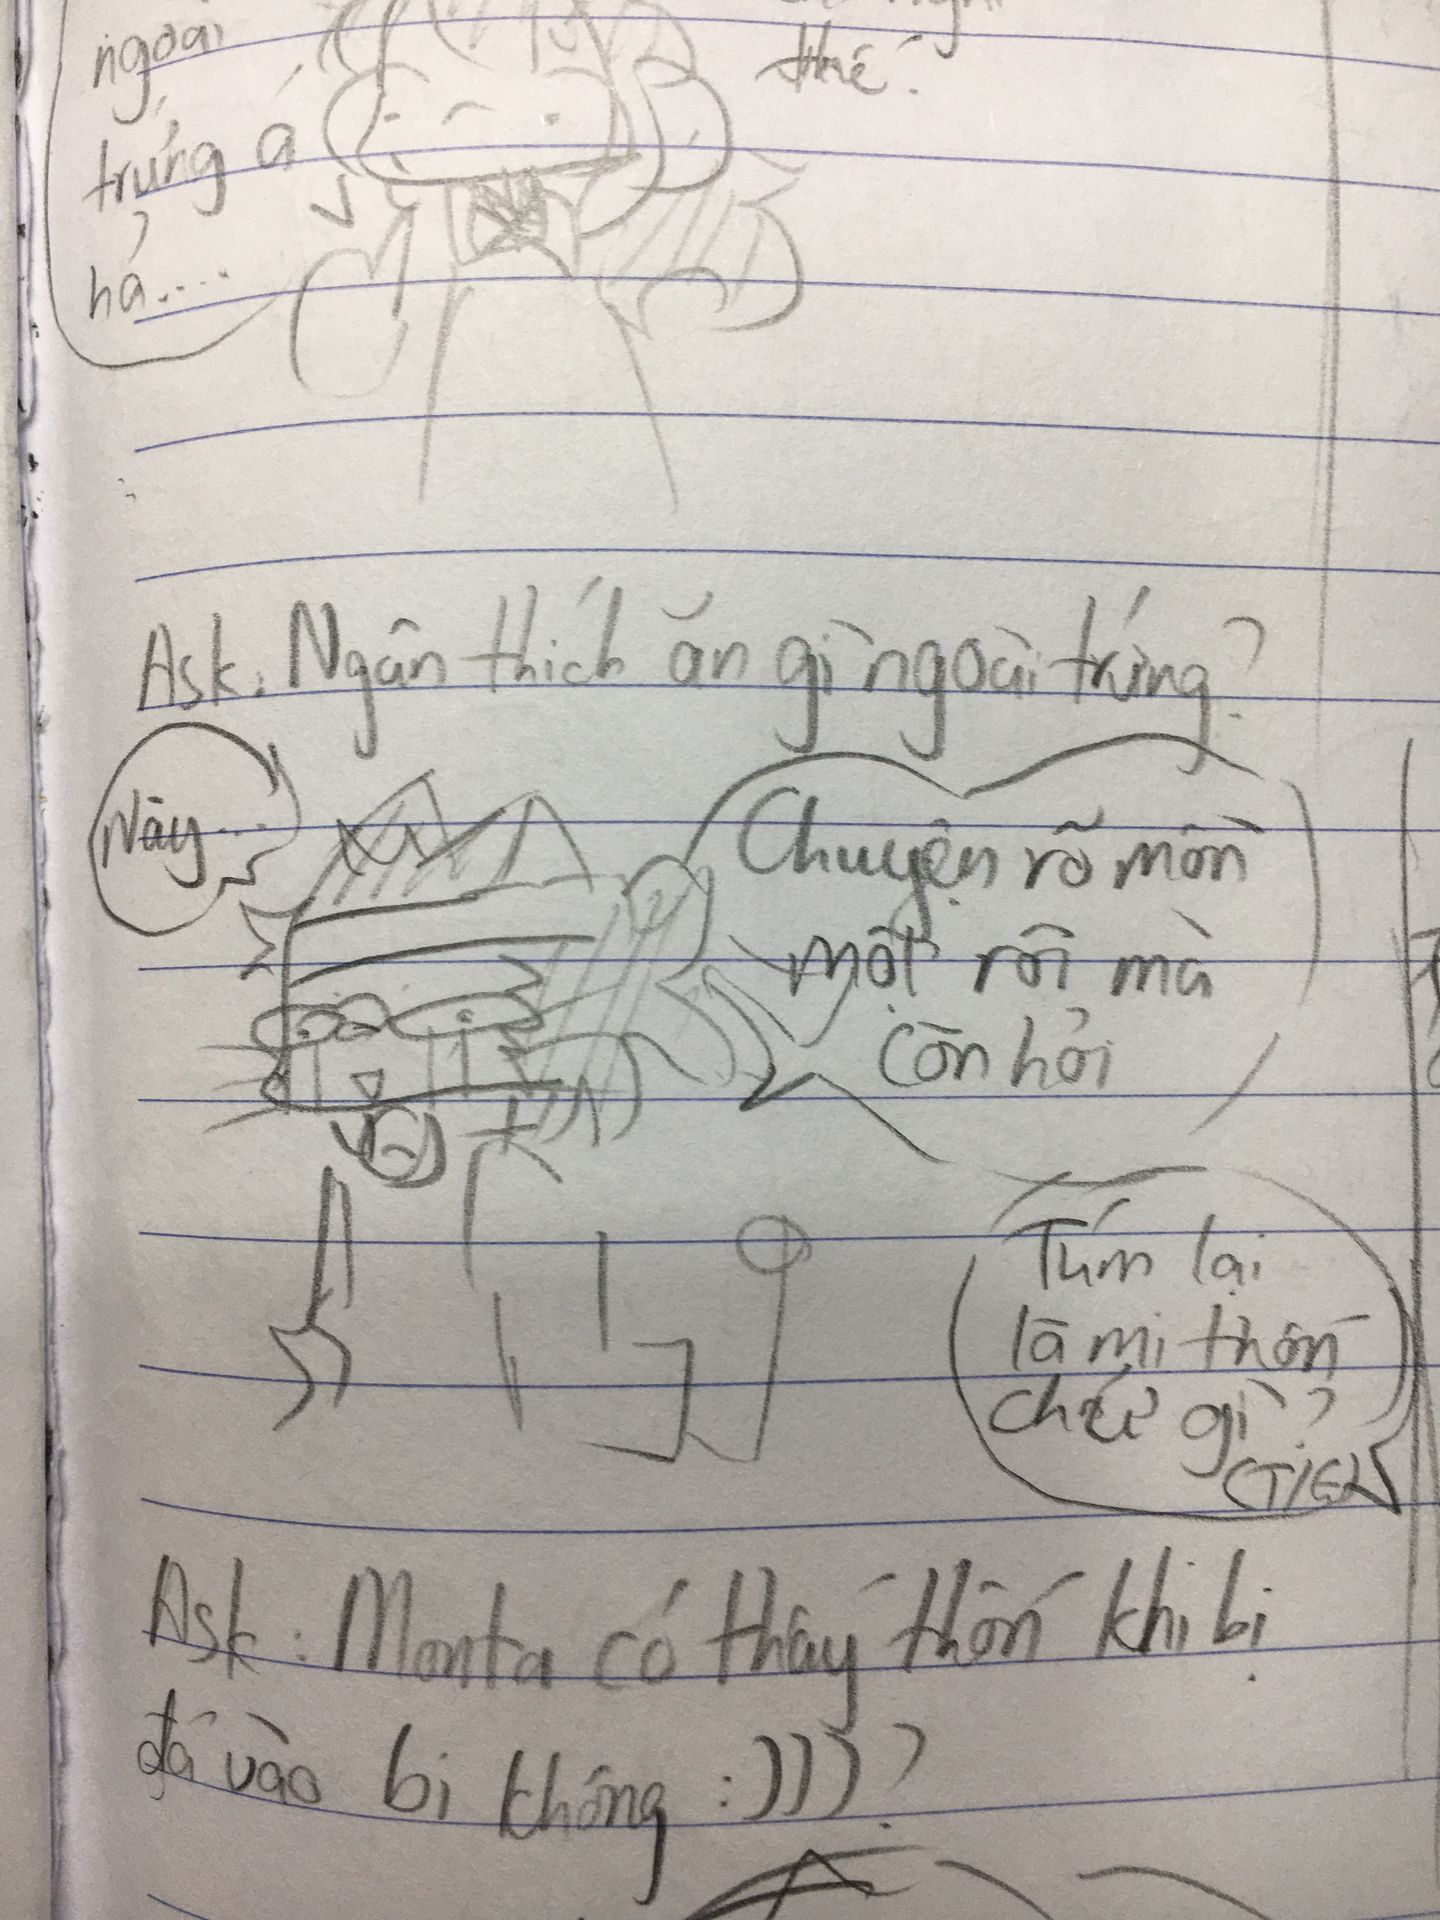 ngoài
trứng á
hả....
thế?
Ask: Ngân thích ăn gì ngoài trứng?
Này...
Chuyện rõ mồn
một rồi mà
còn hỏi
Túm lại
là mi thốn
chứ gì?
Ask: Monta có thấy thốn khi bị
đá vào bi không :))))?